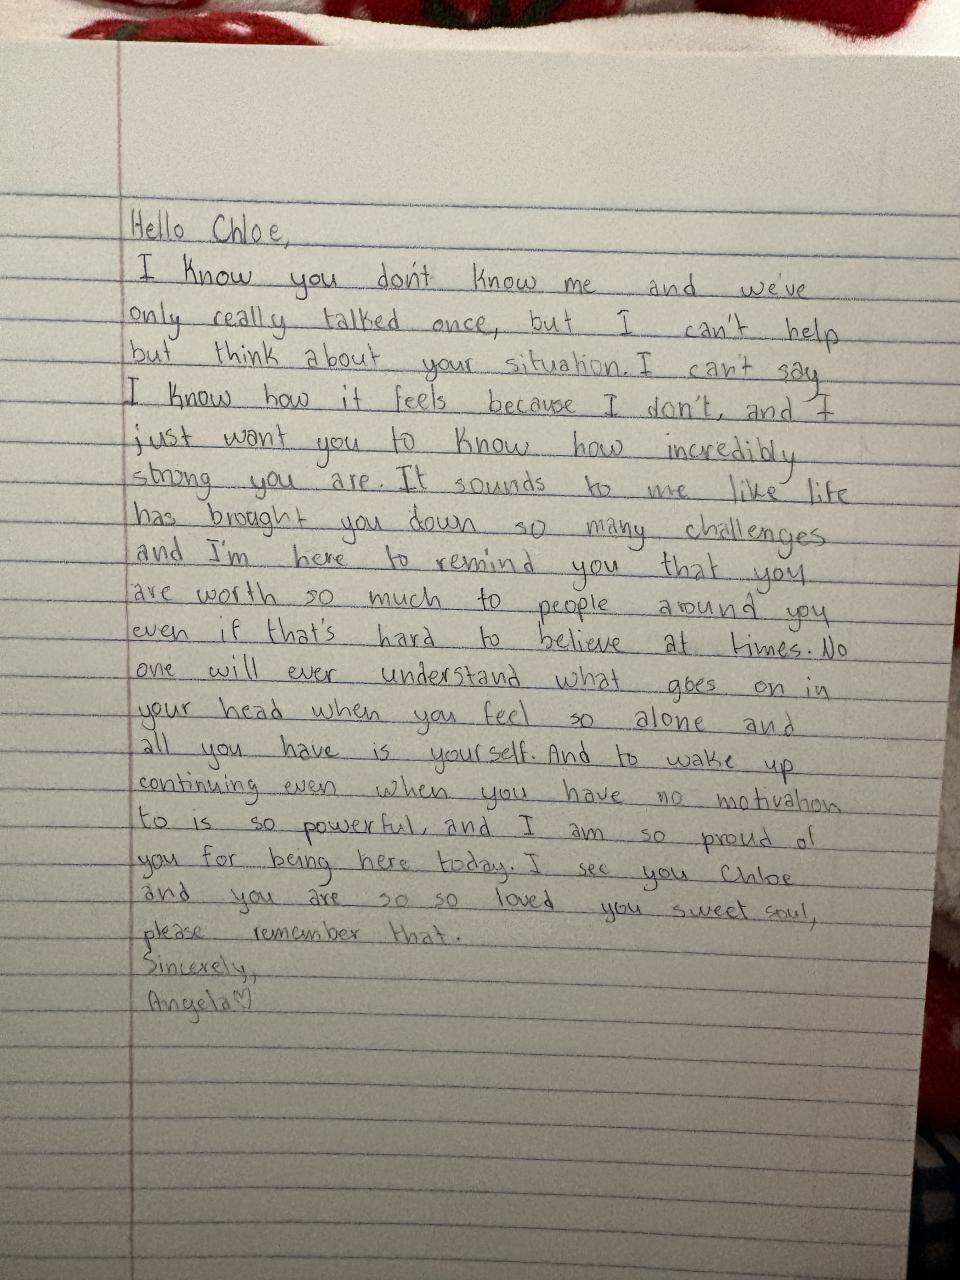 Hello Chloe,
I know you don't know me and we've
only really talked once, but I can't help
but think about your situation. I can't say
I know how it feels because I don't, and I
just want you to know how incredibly
strong you are. It sounds to me like life
has brought you down so many challenges
and I'm here to remind you that you
are worth so much to people around you
even if that's hard to believe at times. No
one will ever understand what goes on in
your head when you feel so alone and
all you have is yourself. And to wake up
continuing even when you have no motivation
to is so powerful, and I am so proud of
you for being here today. I see you Chloe
and you are so so loved you sweet soul,
please remember that.
Sincerely,
Angela♡